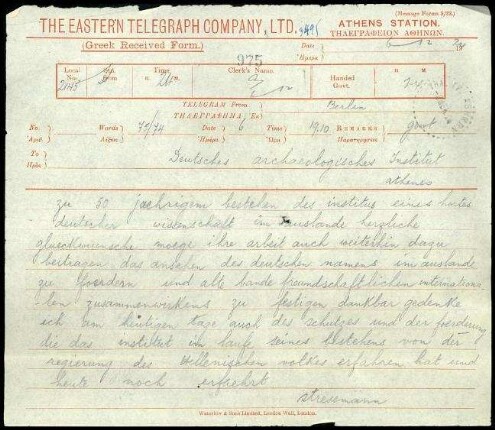 THE EASTERN TELEGRAPH COMPANY, LTD.
(Message Forms
ATHENS STATION.
ΤΗΛΕΓΡΑΦΕΙΟΝ ΑΘΗΝΩΝ.
(Greek Received Form.)
Date
975
Clerk's Name.
Handed
Govt.
TELEGRAM From
Berlin
ΤΗΛΕΓΡΑΦΗΜΑ Ἐκ
No:
Words
79/74
Date
6
Time
1910
REMARKS
To
Deutsches archaeologisches Institut
athenes
zu 50 jaehrigem bestehen des institus eines hortes
deutscher wissenschaft im auslande herzliche
glueckwuensche moege ihre arbeit auch weiterhin dazu
beitragen das ansehen des deutschen namens im auslande
zu foerdern und alte bande freundschaftlichen internationa
len zusammenwirkens zu festigen dankbar gedenke
ich am heutigen tage auch des schutzes und der foerderung
die das institut im laufe seines bestehens von der
regierung des hellenischen volkes erfahren hat und
heute noch erfaehrt
stresemann
Waterlow & Sons Limited, London Wall, London.